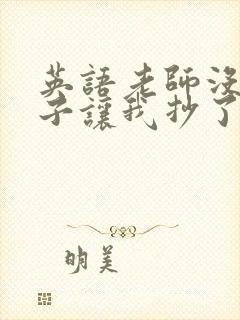 英語老師沒
子讓我抄了
明美